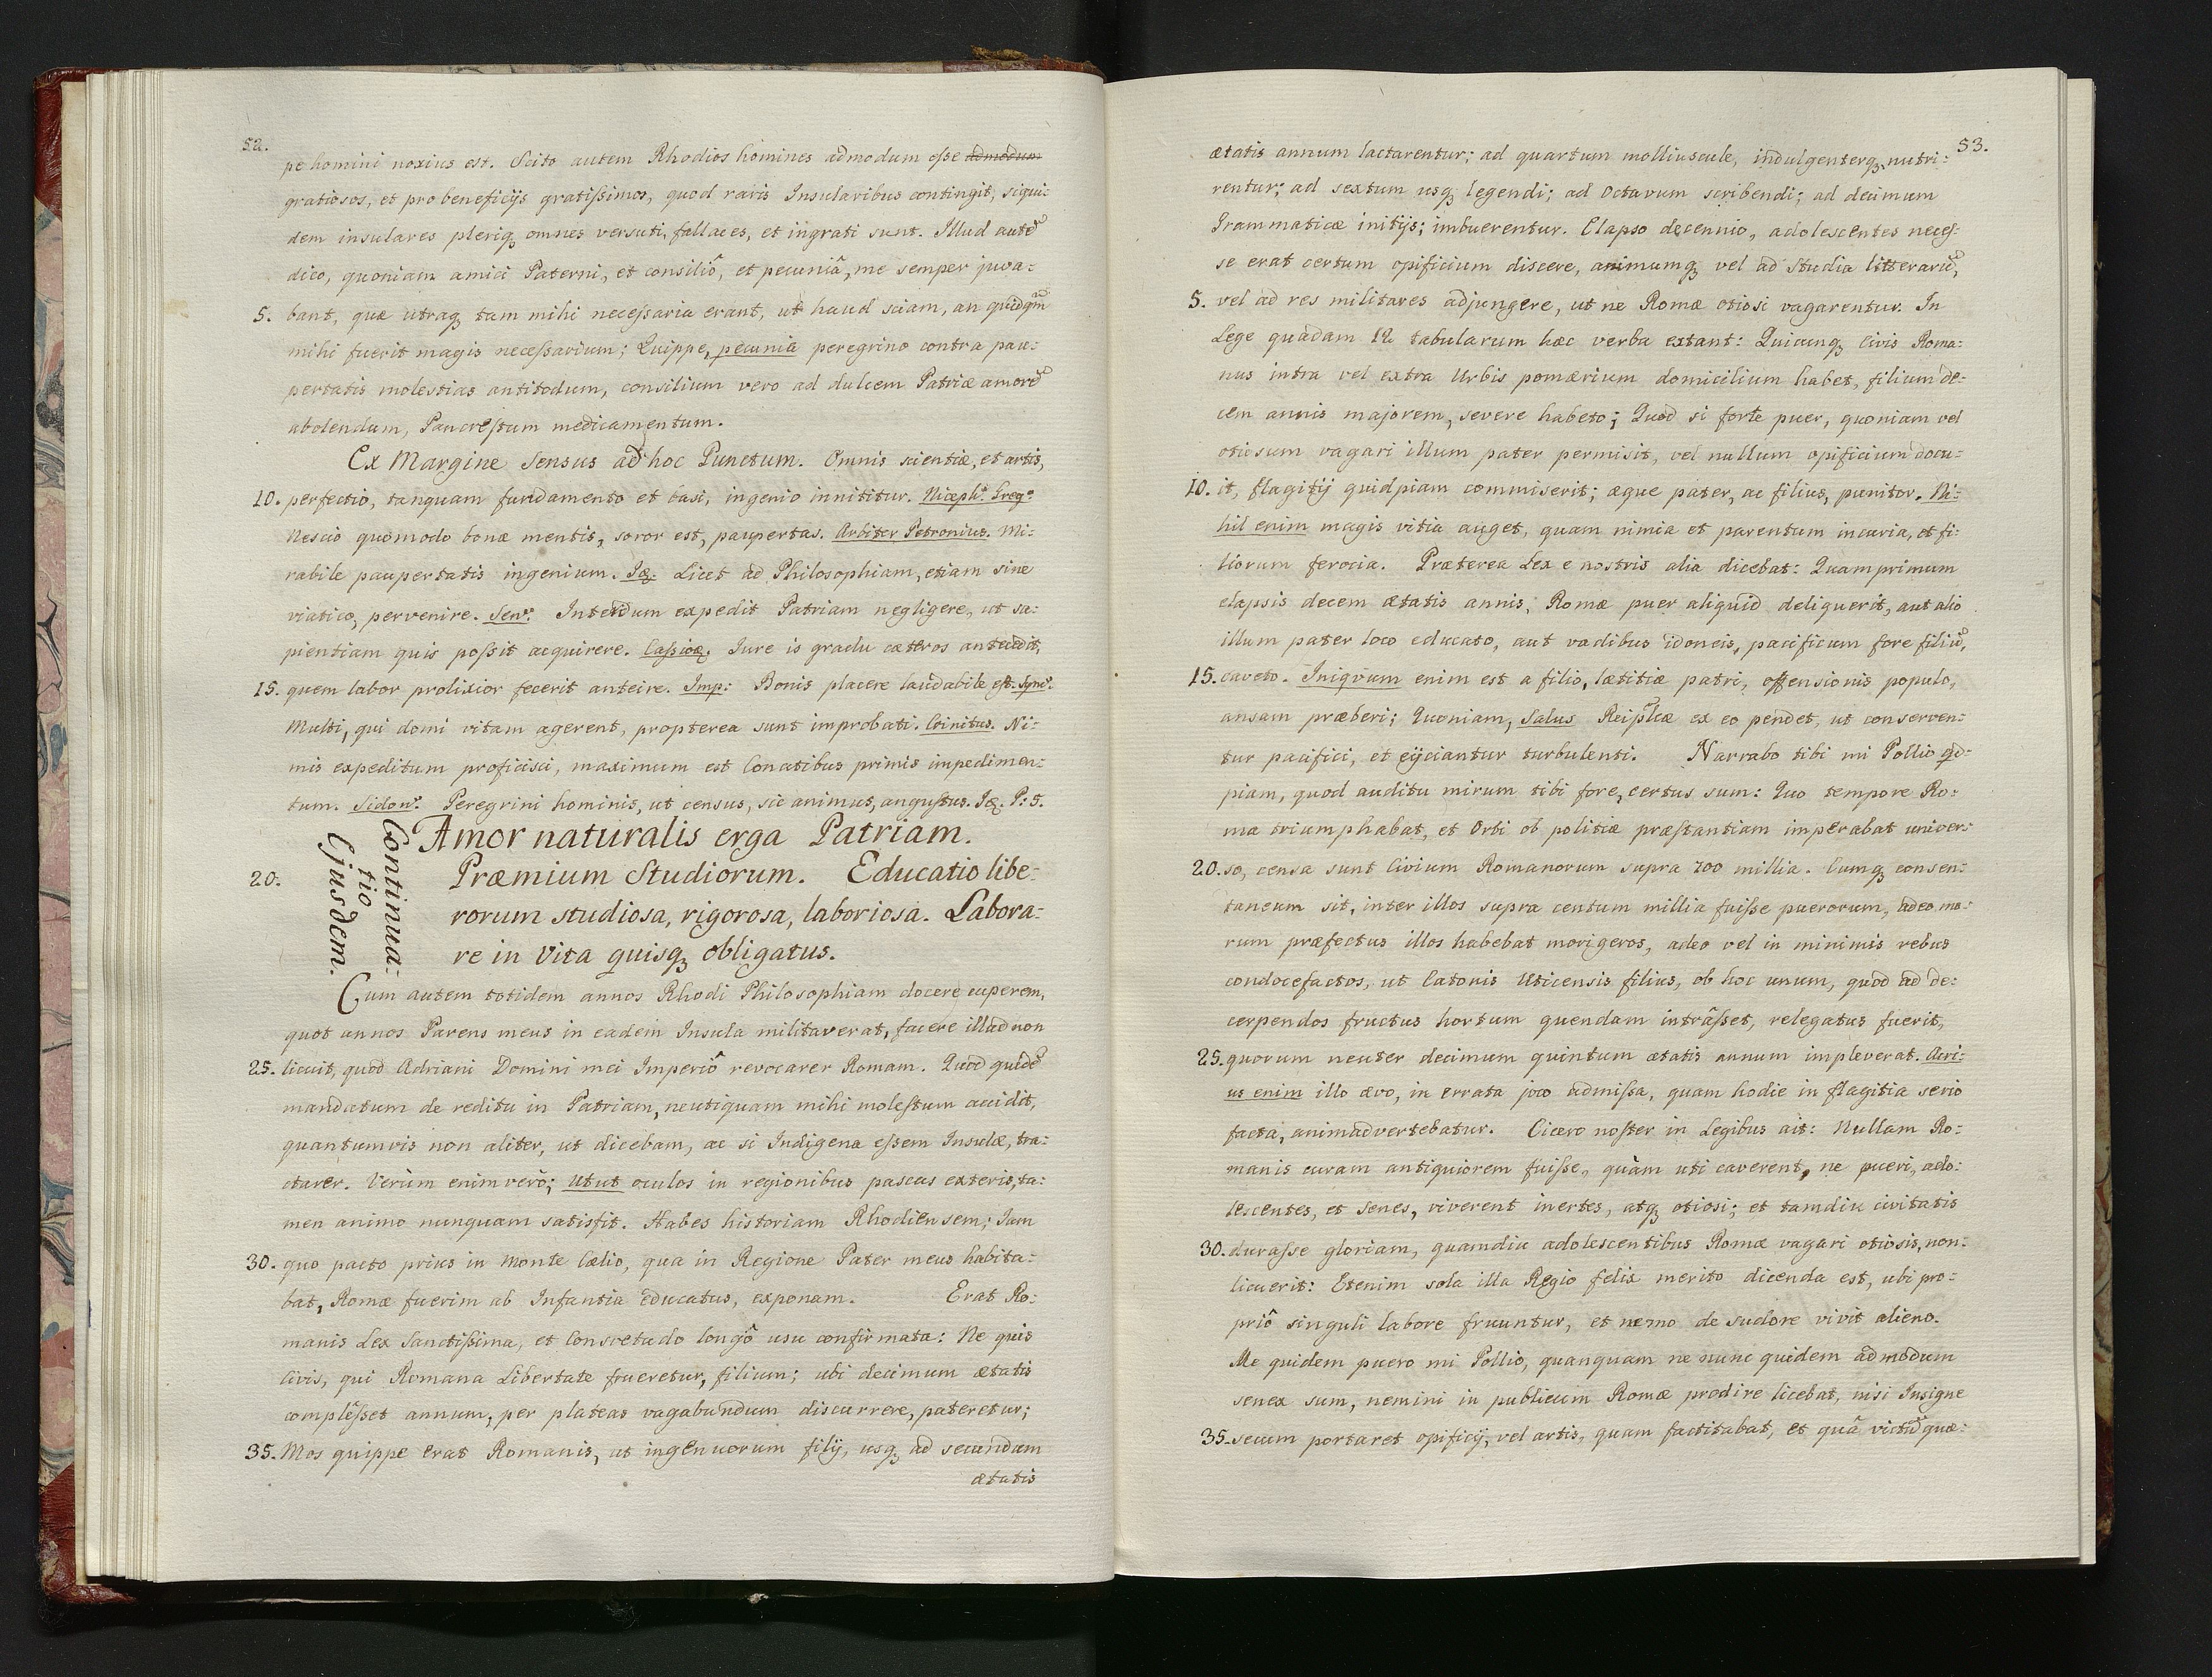 52.
pe homini noxius est. Scito autem Rhodios homines admodum esse admodum
gratiosos, et pro beneficijs gratissimos, quod raris Insularibus contingit, siqui:
dem insulares pleriq₃ omnes versuti, fallaces, et ingrati sunt. Illud autē
dico, quoniam amici Paterni, et consiliô, et pecuniâ, me semper juva:
5. bant, quæ utraq₃ tam mihi necessaria erant, ut haud sciam, an quidqm̃
mihi fuerit magis necessarium; Quippe, pecunia peregrino contra pau:
pertatis molestias antitodum, consilium vero ad dulcem Patriæ amorē
abolendum, Pancrestum medicamentum.
Ex Margine Sensus ad hoc Punctum. Omnis scientiæ, et artis,
10. perfectio, tanquam fundamento et basi, ingenio innititur. Niceph: Greg:
Nescio quomodo bonæ mentis, soror est, paupertas. Arbiter Petronius. Mi:
rabile paupertatis ingenium. Iq₃. Licet ad Philosophiam, etiam sine
viatico, pervenire. Sen: Interdum expedit Patriam negligere, ut sa:
pientiam quis possit acquirere. Cassioq₃. Jure is gradu cæteros antecedit,
15. quem labor prolixior fecerit anteire. Imp: Bonis placere laudabile est. Sync:
Multi, qui domi vitam agerent, propterea sunt improbati. Crinitus. Ni:
mis expeditum proficisci, maximum est Conatibus primis impedimen:
tum. Sidon: Peregrini hominis, ut census, sic animus, angustus. Iq₃. P: 5.
Continua:
tio
Ejusdem.
Amor naturalis erga Patriam.
20. Præmium Studiorum. Educatio libe:
rorum studiosa, rigorosa, laboriosa. Labora:
re in Vita quisq₃ obligatus.
Cum autem totidem annos Rhodi Philosophiam docere cuperem,
quot annos Parens meus in eadem Insula militaverat, facere illud non
25. licuit, quod Adriani Domini mei Imperiô revocarer Romam. Quod quidē
mandatum de reditu in Patriam, neutiquam mihi molestum accidit,
quantumvis non aliter, ut dicebam, ac si Indigena essem Insulæ, tra:
ctarer. Verùm enimverò; Utut oculos in regionibus pascas exteris, ta:
men animo nunquam satisfit. Habes historiam Rhodiensem; Jam
30. quo pacto prius in Monte Cælio, qua in Regione Pater meus habita:
bat, Romæ fuerim ab Infantia educatus, exponam. Erat Ro:
manis Lex Sanctissima, et Consvetudo longô usu confirmata: Ne quis
Civis, qui Romana Libertate frueretur, filium; ubi decimum ætatis
complêsset annum, per plateas vagabundum discurrere, pateretur;
35. Mos quippe erat Romanis, ut ingenuorum filij, usq₃ ad secundum
ætatis
53.
ætatis annum lactarentur; ad quartum molliuscule, indulgenterq₃ nutri:
rentur; ad sextum usq₃ legendi; ad Octavum scribendi; ad decimum
Grammaticæ initijs; imbuerentur. Elapso decennio, adolescentes neces:
se erat certum opificium discere, animumq₃ vel ad Studia litterarū,
5. vel ad res militares adjungere, ut ne Romæ otiosi vagarentur. In
Lege quâdam 12 tabularum hæc verba extant: Quicunq₃ Civis Roma:
nus intra vel extra Urbis pomærium domicilium habet, filium de:
cem annis majorem, severe habeto; Quod si forte puer, quoniam vel
otiosum vagari illum pater permisit, vel nullum opificium docu:
10. it, flagitij quidpiam commiserit; æque pater, ac filius, punitor. Ni:
hil enim magis vitia auget, quam nimia et parentum incuria, et fi:
liorum ferocia. Præterea Lex e nostris alia dicebat: Quamprimum
elapsis decem ætatis annis, Romæ puer aliquid deliquerit, aut alio
illum pater loco educato, aut vadibus idoneis, pacificum fore filiū,
15. caveto. Iniqvum enim est a filio, lætitiæ patri, offensionis populo,
ansam præberi; Quoniam, Salus Reiplcæ ex eo pendet, ut conserven:
tur pacifici, et ejiciantur turbulenti. Narrabo tibi mi Pollio qd:
piam, quod auditu mirum tibi fore, certus sum: Quo tempore Ro:
ma triumphabat, et Orbi ob politiæ præstantiam imperabat univer:
20. so, censa sunt Civium Romanorum supra 200 millia. Cumq₃ consen:
taneum sit, inter illos supra centum millia fuisse puerorum, adeo mo:
rum præfectus illos habebat morigeros, adeo vel in minimis rebus
condocefactos, ut Catonis Uticensis filius, ob hoc unum, quod ad de:
cerpendos fructus hortum quendam intrâsset, relegatus fuerit,
25. quorum neuter decimum quintum ætatis annum impleverat. Acri:
us enim illo ævo, in errata joco admissa, quam hodie in flagitia serio
facta, animadvertebatur. Cicero noster in Legibus ait: Nullam Ro:
manis curam antiquiorem fuisse, quàm uti caverent, ne pueri, ado:
lescentes, et Senes, viverent inertes, atq₃ otiosi; et tamdiu civitatis
30. durasse gloriam, quamdiu adolescentibus Romæ vagari otiosis, non:
licuerit: Etenim sola illa Regio felix merito dicenda est, ubi pro:
priô singuli labore fruuntur, et nemo de sudore vivit alieno.
Me quidem puero mi Pollio, quanquam ne nunc quidem admodum
senex sum, nemini in publicum Romæ prodire licebat, nisi Insigne
35. secum portaret opificij, vel artis, quam factitabat, et quâ victū quæ: